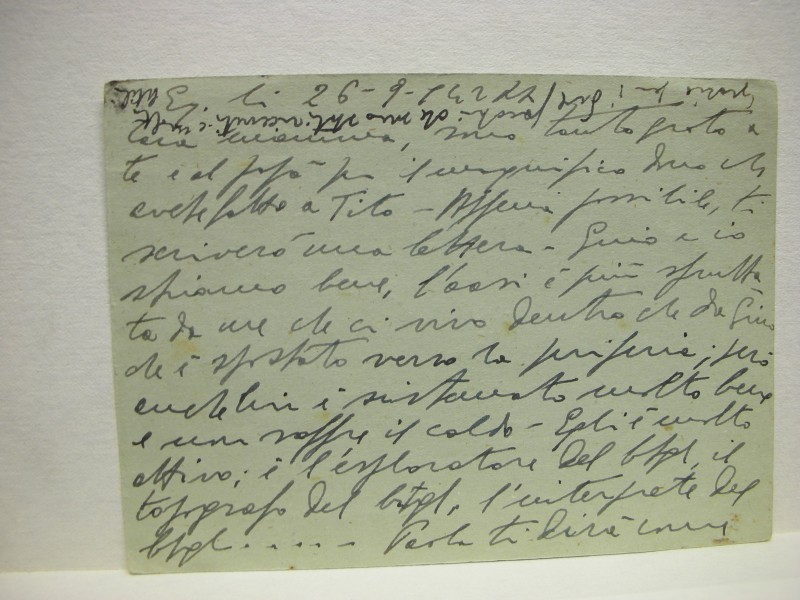 li 26-9-1942
Cara mamma, sono tanto grato a
te e al papà per il magnifico dono che
avete fatto a Tito - Appena possibile, ti
scriverò una lettera - Gino e io
stiamo bene, l'oasi è più sfrutta
ta da me che ci vivo dentro che da Gino
che è spostato verso la periferia; però
anche lui è sistemato molto bene
e non soffre il caldo - Egli è molto
attivo; è l'esploratore del btgl, il
topografo del btgl, l'interprete del
btgl..... - Paola ti dirà come